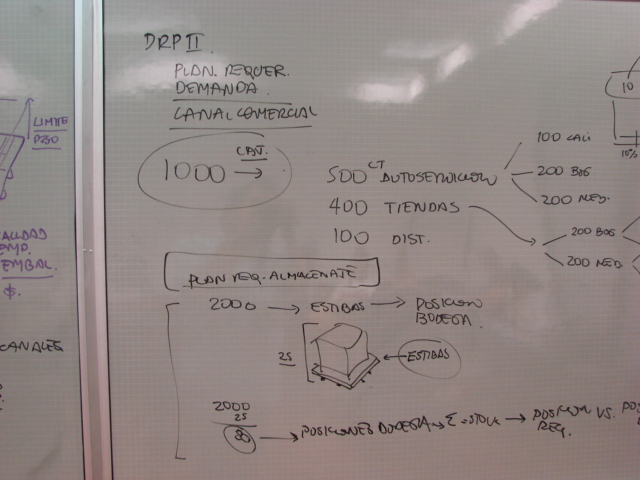 DRP II
PLAN. REQUER.
DEMANDA.
CANAL COMERCIAL
1000 CAJ. →
500 CT AUTOSERVICIOS
100 CALI
200 BOG
200 MED.
400 TIENDAS
200 BOG
200 MED
100 DIST.
10
10%
LIMITE
PESO
CALIDAD
EMBAL.
$.
CANALES
PLAN REQ. ALMACENATE
2000 → ESTIBAS → POSICION
BODEGA.
25
ESTIBAS
2000
25
80 → POSICIONES BODEGA → Σ = STOCK → POSICION VS.
REQ.